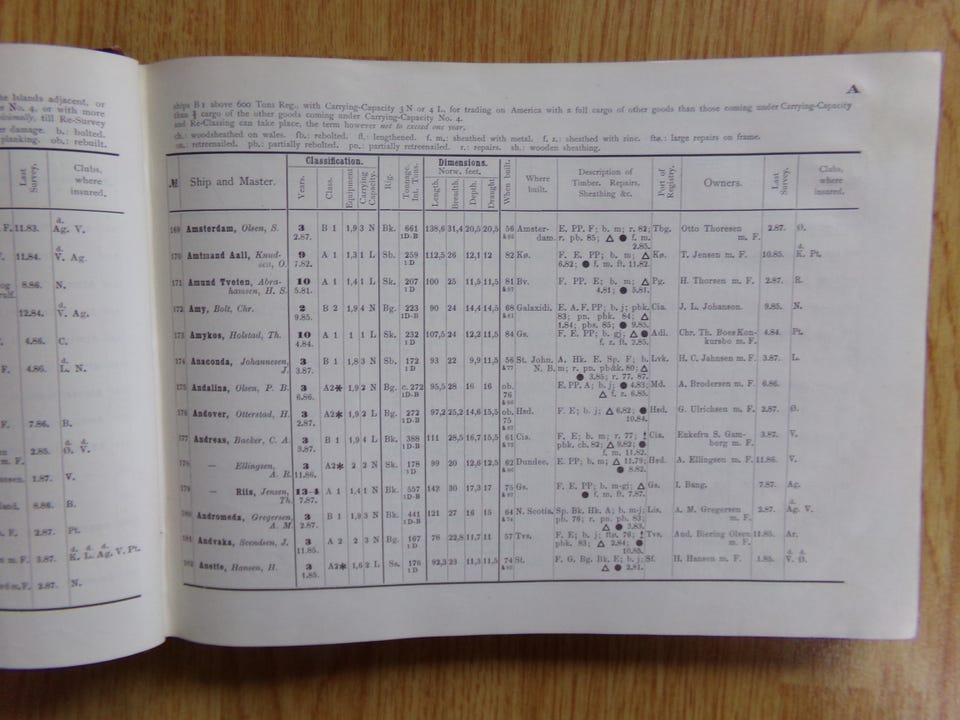 the Islands adjacent, or
No. 4, or with more
till Re-Survey
damage. b.: bolted.
planking. ob.: rebuilt.
Last Survey.
Clubs, where insured.
F. 11.83. d. Ag. V.
F. 11.84. d. V. Ag.
8.86. N.
12.84. d. V. Ag.
4.86. C.
F. 4.86. d. L. N.
F. 7.86. B.
2.85. d. d. Ø. V.
1.87. V.
8.86. B.
F. 2.87. Pt.
m F. 3.87. d. d. d. K. L. Ag. V. Pt.
F. 2.87. N.
A
ships B 1 above 600 Tons Reg., with Carrying-Capacity 3 N or 4 L, for trading on America with a full cargo of other goods than those coming under Carrying-Capacity
than cargo of the other goods coming under Carrying-Capacity No. 4.
and Re-Classing can take place, the term however not to exceed one year.
ch.: woodsheathed on wales. fb.: rebolted. fl.: lengthened. f. m.: sheathed with metal. f. z.: sheathed with zinc. fts.: large repairs on frame.
on.: retreenailed. pb.: partially rebolted. pn.: partially retreenailed. r.: repairs. sh.: wooden sheathing.
№ Ship and Master. Classification. Years. Class. Equipment Carrying Capacity. Rig. Tonnage. Int. Tons. Dimensions. Norw. feet. Length. Breadth. Depth. Draught When built. Where built. Description of Timber. Repairs, Sheathing &c. Port of Registry. Owners. Last Survey. Clubs, where insured.
169 Amsterdam, Olsen, S. 3 B 1 1,9 3 N Bk. 661 138,6 31,4 20,5 20,5 56 Amster- E. PP. F; b. m; r. 82; Tbg. Otto Thoresen 2.87. Ø.
2.87. 1D-B dam. r. pb. 85; △ ● f. m. m. F.
2.85.
170 Amtmand Aall, Knud- 9 A 1 1,3 1 L Sb. 259 112,5 26 12,1 12 82 Kø. F. E. PP; b. m; △ Kø. T. Jensen m. F. 10.85. d. K. Pt.
sen, O. 7.82. 1 D 6.82; ● f. m. ft. 11.82.
171 Amund Tveten, Abra- 10 A 1 1,4 1 L Sk. 207 100 25 11,5 11,5 81 Bv. F. PP. E; b. m; △ Pg. H. Thorsen m. F. 2.87. R.
hamsen, H. S. 5.81. 1 D 4.81; ● 5.81.
172 Amy, Bolt, Chr. 2 B 2 1,9 4 N Bg. 223 90 24 14,4 14,5 68 Galaxidi. E. A. F. PP; b. j; pbk. Cia. J. L. Johanson. 9.85. N.
9.85. 1D-B 83; pn. pbk. 84; △
1.84; pbs. 85; ● 9.85.
173 Amykos, Holstad, Th. 10 A 1 1 1 L Sk. 232 107,5 24 12,2 11,5 84 Gs. F. E. PP; b. gj; △ ● Adl. Chr. Th. Boes Kon- 4.84. Pt.
4.84. 1 D f. z. ft. 2.85. kursbo m. F.
174 Anaconda, Johannesen, 3 B 1 1,8 3 N Sb. 172 93 22 9,9 11,5 56 St. John, A. Hk. E. Sp. F; b. Lvk. H. C. Jahnsen m. F. 3.87. L.
J. 3.87. 1 D N. B. m; r. pn. pb&k. 80; △
● 3.85; r. 77. 87.
175 Andalina, Olsen, P. B. 3 A2* 1,9 2 N Bg. c. 272 95,5 28 16 16 ob. 76 E. PP. A; b. j; ● 4.83; Md. A. Brodersen m. F. 6.86.
6.86. △ f. z. 6.85.
176 Andover, Otterstad, H. 3 A2* 1,9 2 L Bg. 272 97,2 25,2 14,6 15,5 ob. 75 Hsd. F. E; b. j; △ 6.82; ● Hsd. G. Ulrichsen m. F. 2.87. Ø.
2.87. 1D-B 10.84.
177 Andreas, Backer, C. A. 3 B 1 1,9 4 L Bk. 388 111 28,5 16,7 15,5 61 Cia. F. E; b. m; r. 77; ! Cia. Enkefru S. Gam- 3.87. V.
3.87. 1D-B pbk. ch. 82; △ 9.82; ● borg m. F.
f. m. 11.82.
178 — Ellingsen, 3 A2* 2 2 N Sk. 178 99 20 12,6 12,5 62 Dundee. E. PP; b. m; △ 11.79; Hsd. A. Ellingsen m. F. 11.86. V.
A. R. 11.86. 1 D ● 8.82.
179 — Riis, Jensen, 13-4 A 1 1,4 1 N Bk. 557 142 30 17,3 17 75 Gs. F. E. PP; b. m-gj; △ Gs. I. Bang. 7.87. Ag.
Th. 7.87. 1D-B ● f. m. ft. 7.87.
180 Andromeda, Gregersen, 3 B 1 1,9 3 N Bk. 441 121 27 16 15 64 N. Scotia. Sp. Bk. Hk. A; b. m-j; Lis. A. M. Gregersen 2.87. d. Ag. V.
A. M 2.87. 1D-B pb. 76; r. pn. pb. 83; m. F.
△ ● 3.83.
181 Andvaka, Svendsen, J. 3 A 2 2 3 N Bg. 167 78 22,8 11,7 11 57 Tvs. F. E; b. j; fts. 76; ! Tvs. And. Biering Olsen 11.85. Ar.
11.85. 1 D pbk. 83; △ 2.84; ● m. F.
10.85.
182 Anette, Hansen, H. 3 A2* 1,6 2 L Ss. 176 92,3 23 11,3 11,5 74 St. F. G. Bg. Bk. E; b. j; Sf. H. Hansen m. F. 1.85. d. d. V. Ø.
1.85. 1 D △ ● 2.81.